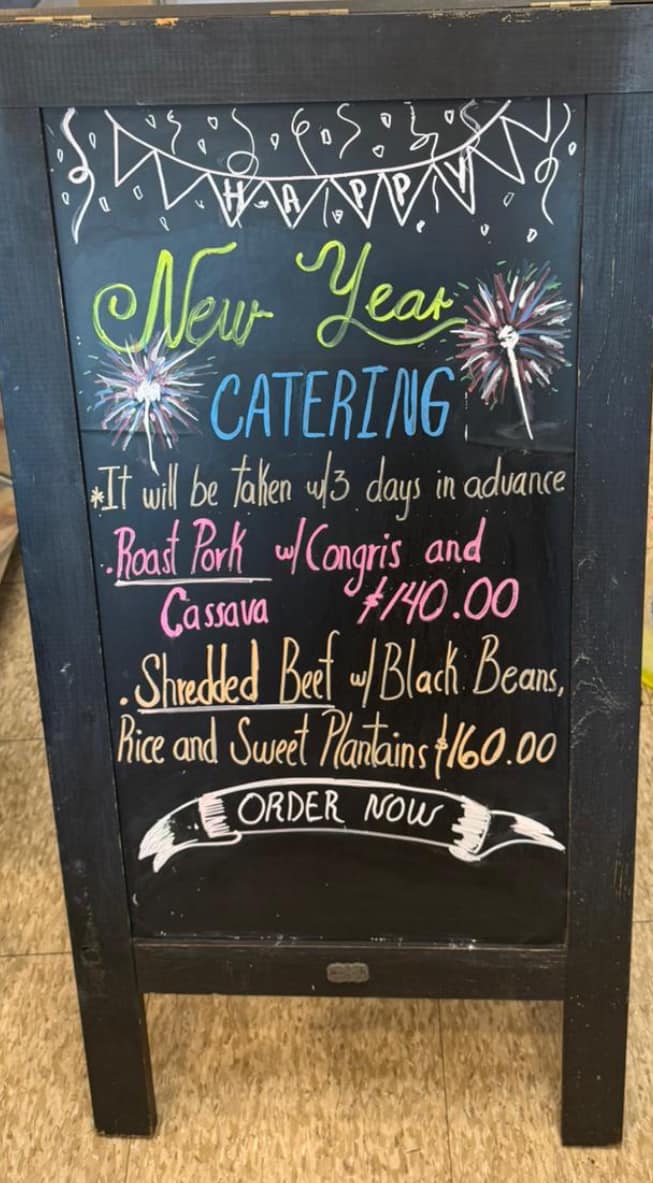 HAPPY
New Year
CATERING
*It will be taken w/3 days in advance
.Roast Pork w/Congris and
Cassava $140.00
.Shredded Beef w/Black Beans,
Rice and Sweet Plantains $160.00
ORDER NOW